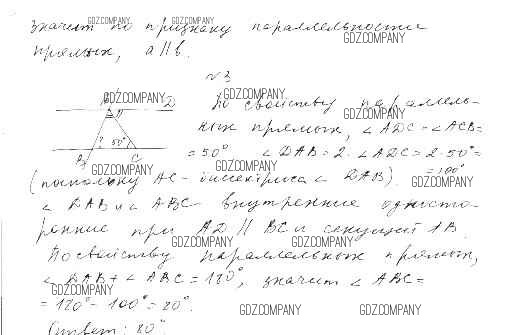 значит по признаку параллельности
прямых, a || b.
GDZ.COMPANY GDZ.COMPANY
GDZ.COMPANY
N 3
GDZ.COMPANY GDZ.COMPANY
GDZ.COMPANY
D
? 50°
B C
По свойству параллель-
ных прямых, ∠ADC = ∠ACB =
= 50° ∠DAB = 2·∠ADC = 2·50° =
= 100°
GDZ.COMPANY GDZ.COMPANY
GDZ.COMPANY
(поскольку AC - биссектриса ∠DAB).
∠DAB и ∠ABC - внутренние односто-
ронние при AD || BC и секущей AB.
GDZ.COMPANY GDZ.COMPANY
По свойству параллельных прямых,
∠DAB + ∠ABC = 180°, значит ∠ABC =
GDZ.COMPANY
= 180° - 100° = 80°.
GDZ.COMPANY GDZ.COMPANY
Ответ: 80°